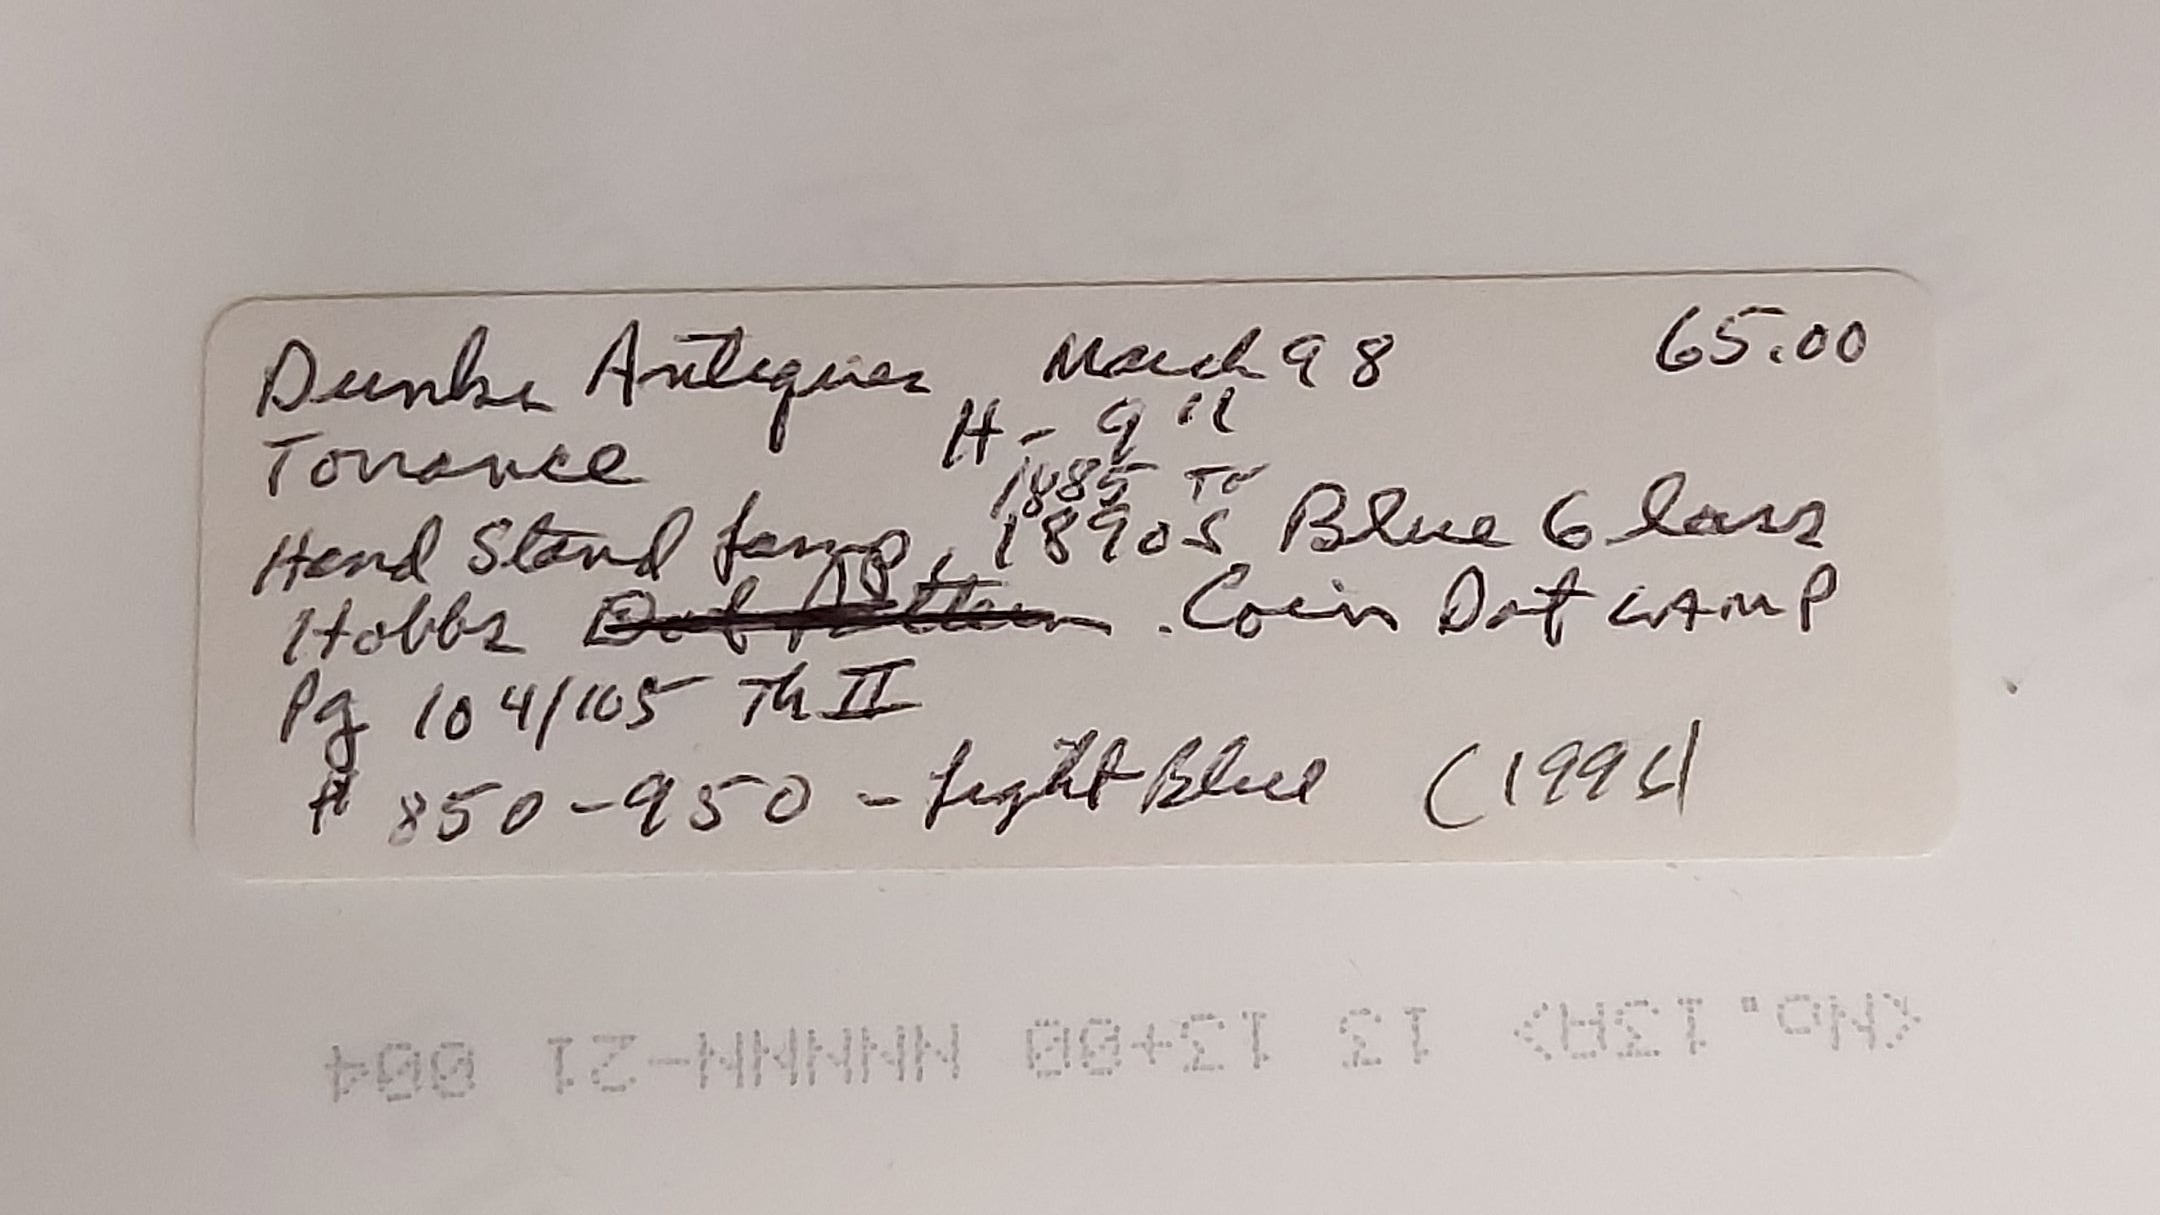 Antiques March 98 65.00
Torrance H - 9"
1885 To
Hand Stand Lamp, 1890s Blue Glass
Hobbs Dot Pattern . Coin Dot LAMP
Pg 104/105 Th II
# 850-950 - Light Blue (1996)
<No.13A> 13 13+00 NNNNN-21 004